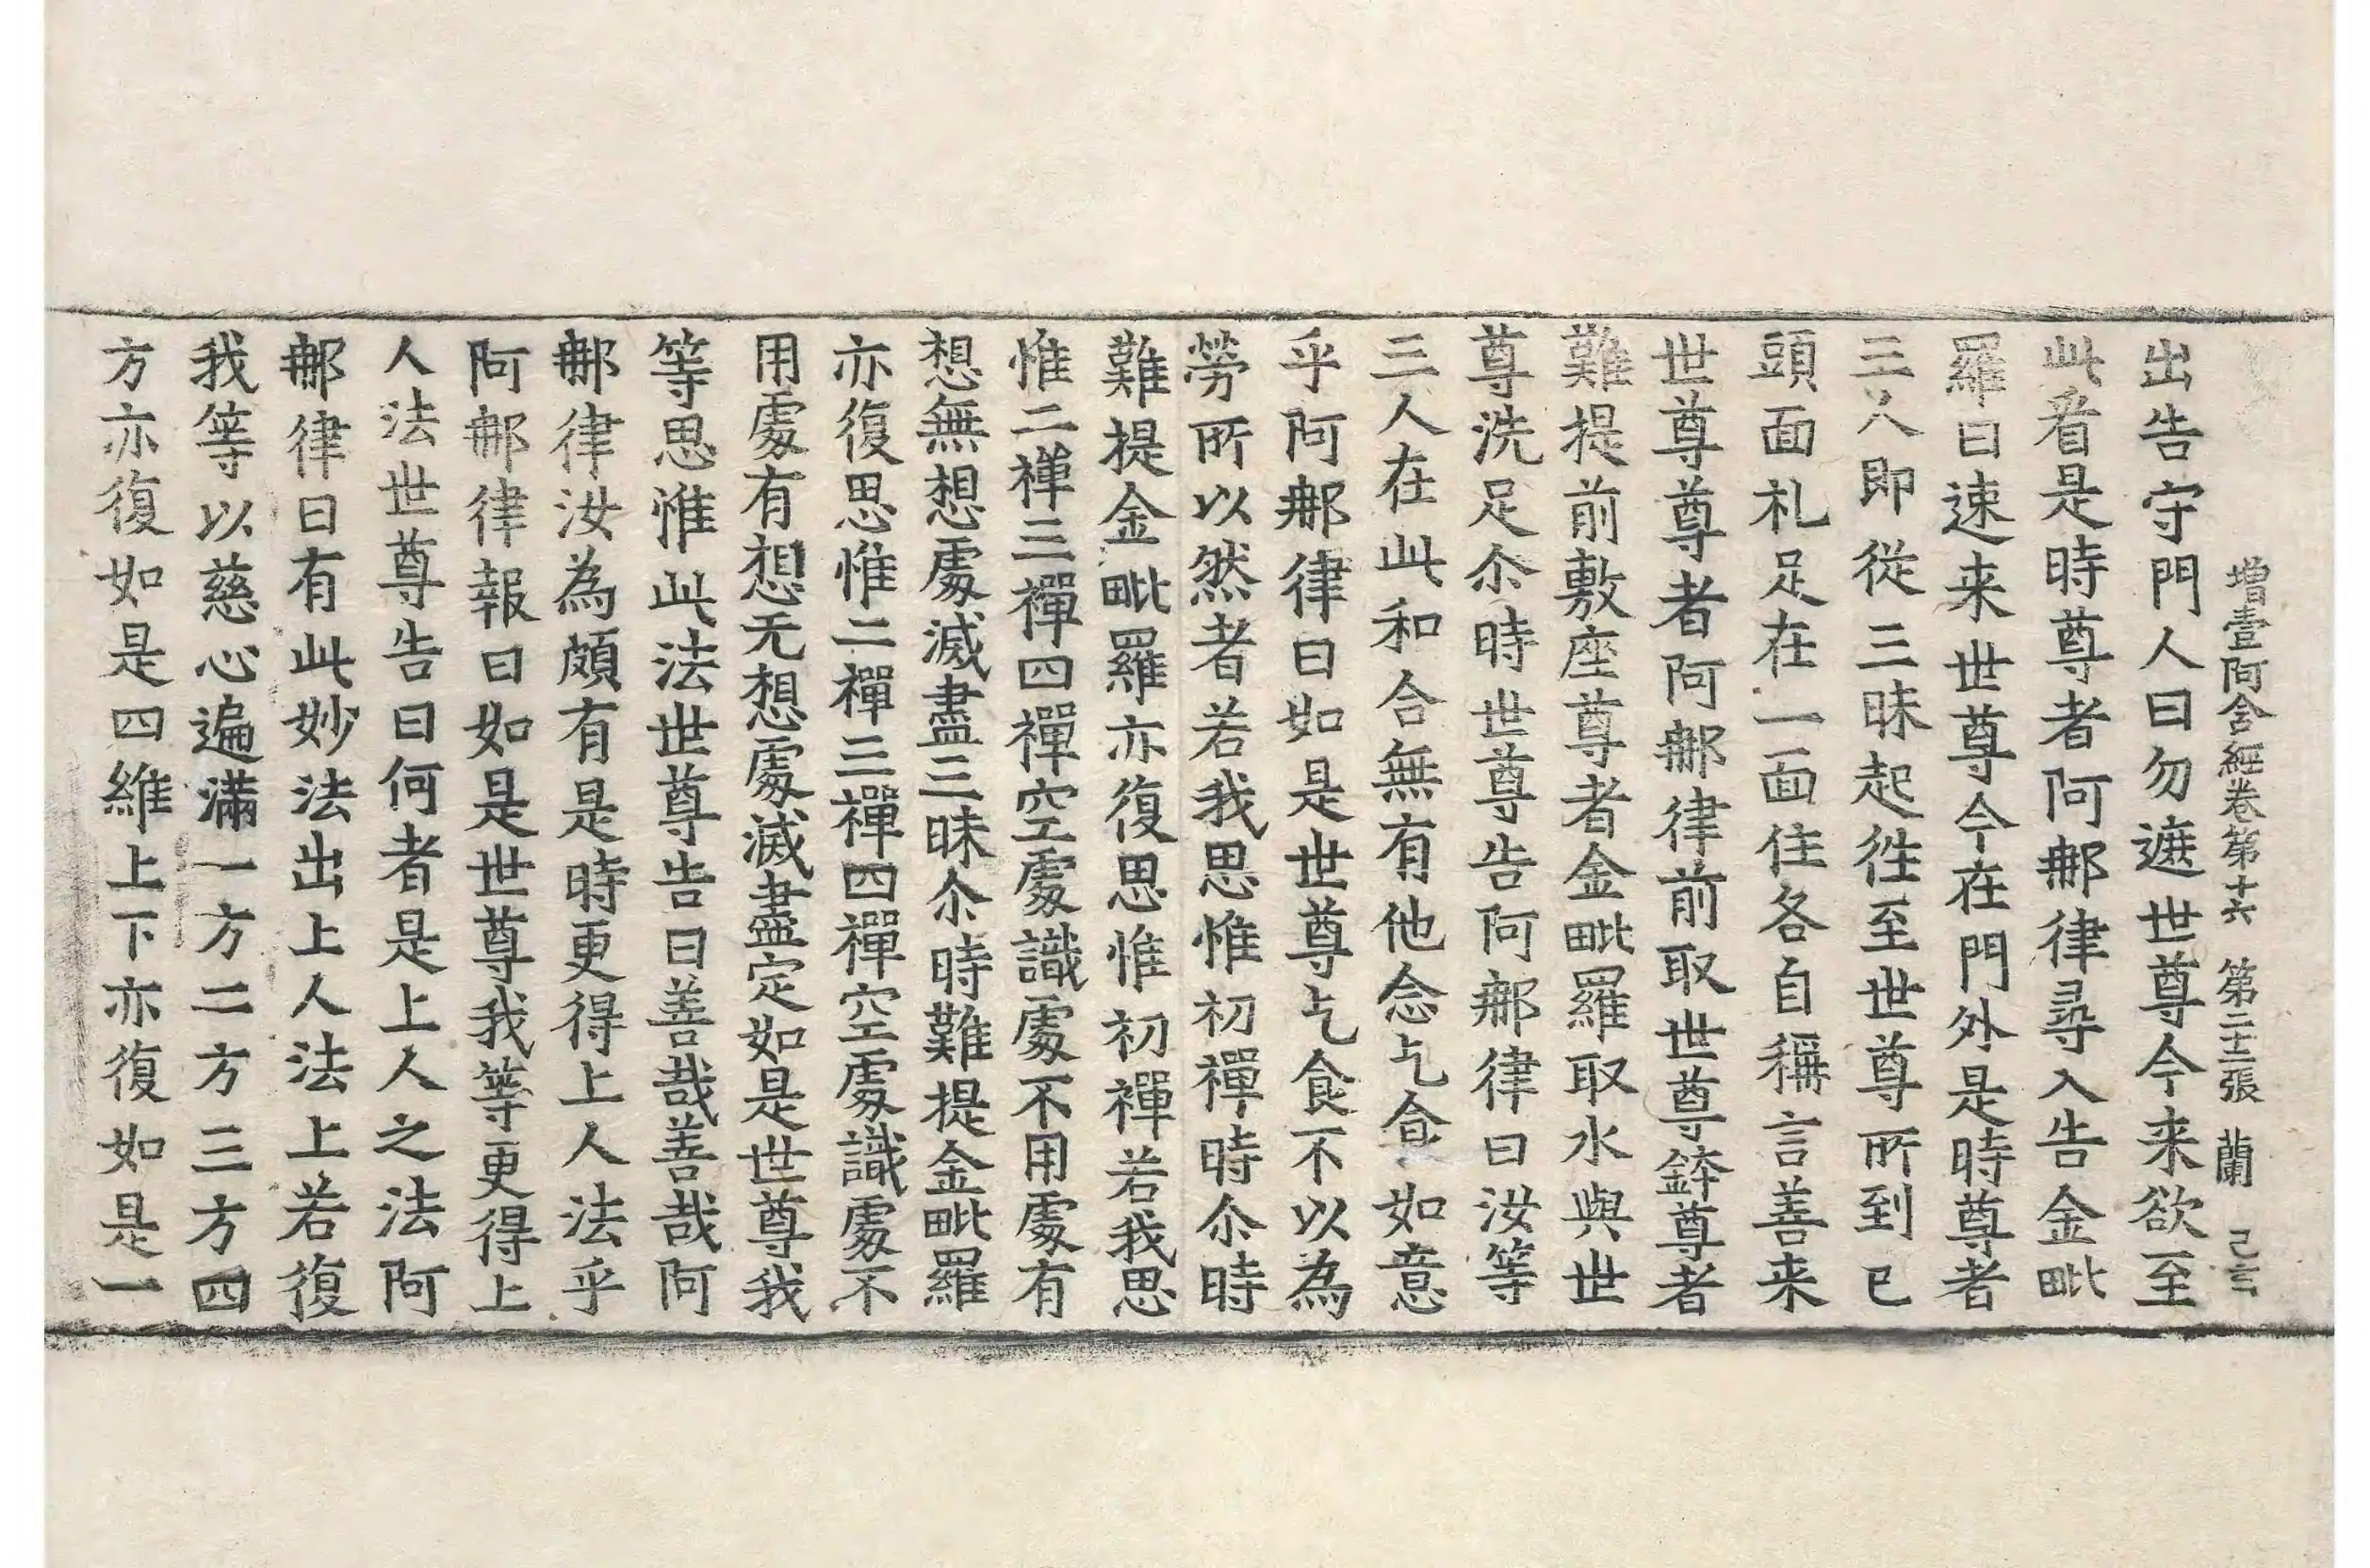 增壹阿含經卷第十六 第二十二張 蘭
出告守門人曰勿遮世尊今来欲至
此看是時尊者阿𨚗律尋入告金毗
羅曰速来世尊今在門外是時尊者
三人即從三昧起徃至世尊所到已
頭面札足在一面住各自稱言善来
世尊尊者阿𨚗律前取世尊鉢尊者
難提前敷座尊者金毗羅取水與世
尊洗足尒時世尊告阿𨚗律曰汝等
三人在此和合無有他念乞食如意
乎阿𨚗律曰如是世尊乞食不以為
勞所以然者若我思惟初禪時尒時
難提金毗羅亦復思惟初禪若我思
惟二禪三禪四禪空處識處不用處有
想無想處滅盡三昧尒時難提金毗羅
亦復思惟二禪三禪四禪空處識處不
用處有想无想處滅盡定如是世尊我
等思惟此法世尊告曰善哉善哉阿
𨚗律汝為頗有是時更得上人法乎
阿𨚗律報曰如是世尊我等更得上
人法世尊告曰何者是上人之法阿
𨚗律曰有此妙法出上人法上若復
我等以慈心遍滿一方二方三方四
方亦復如是四維上下亦復如是一